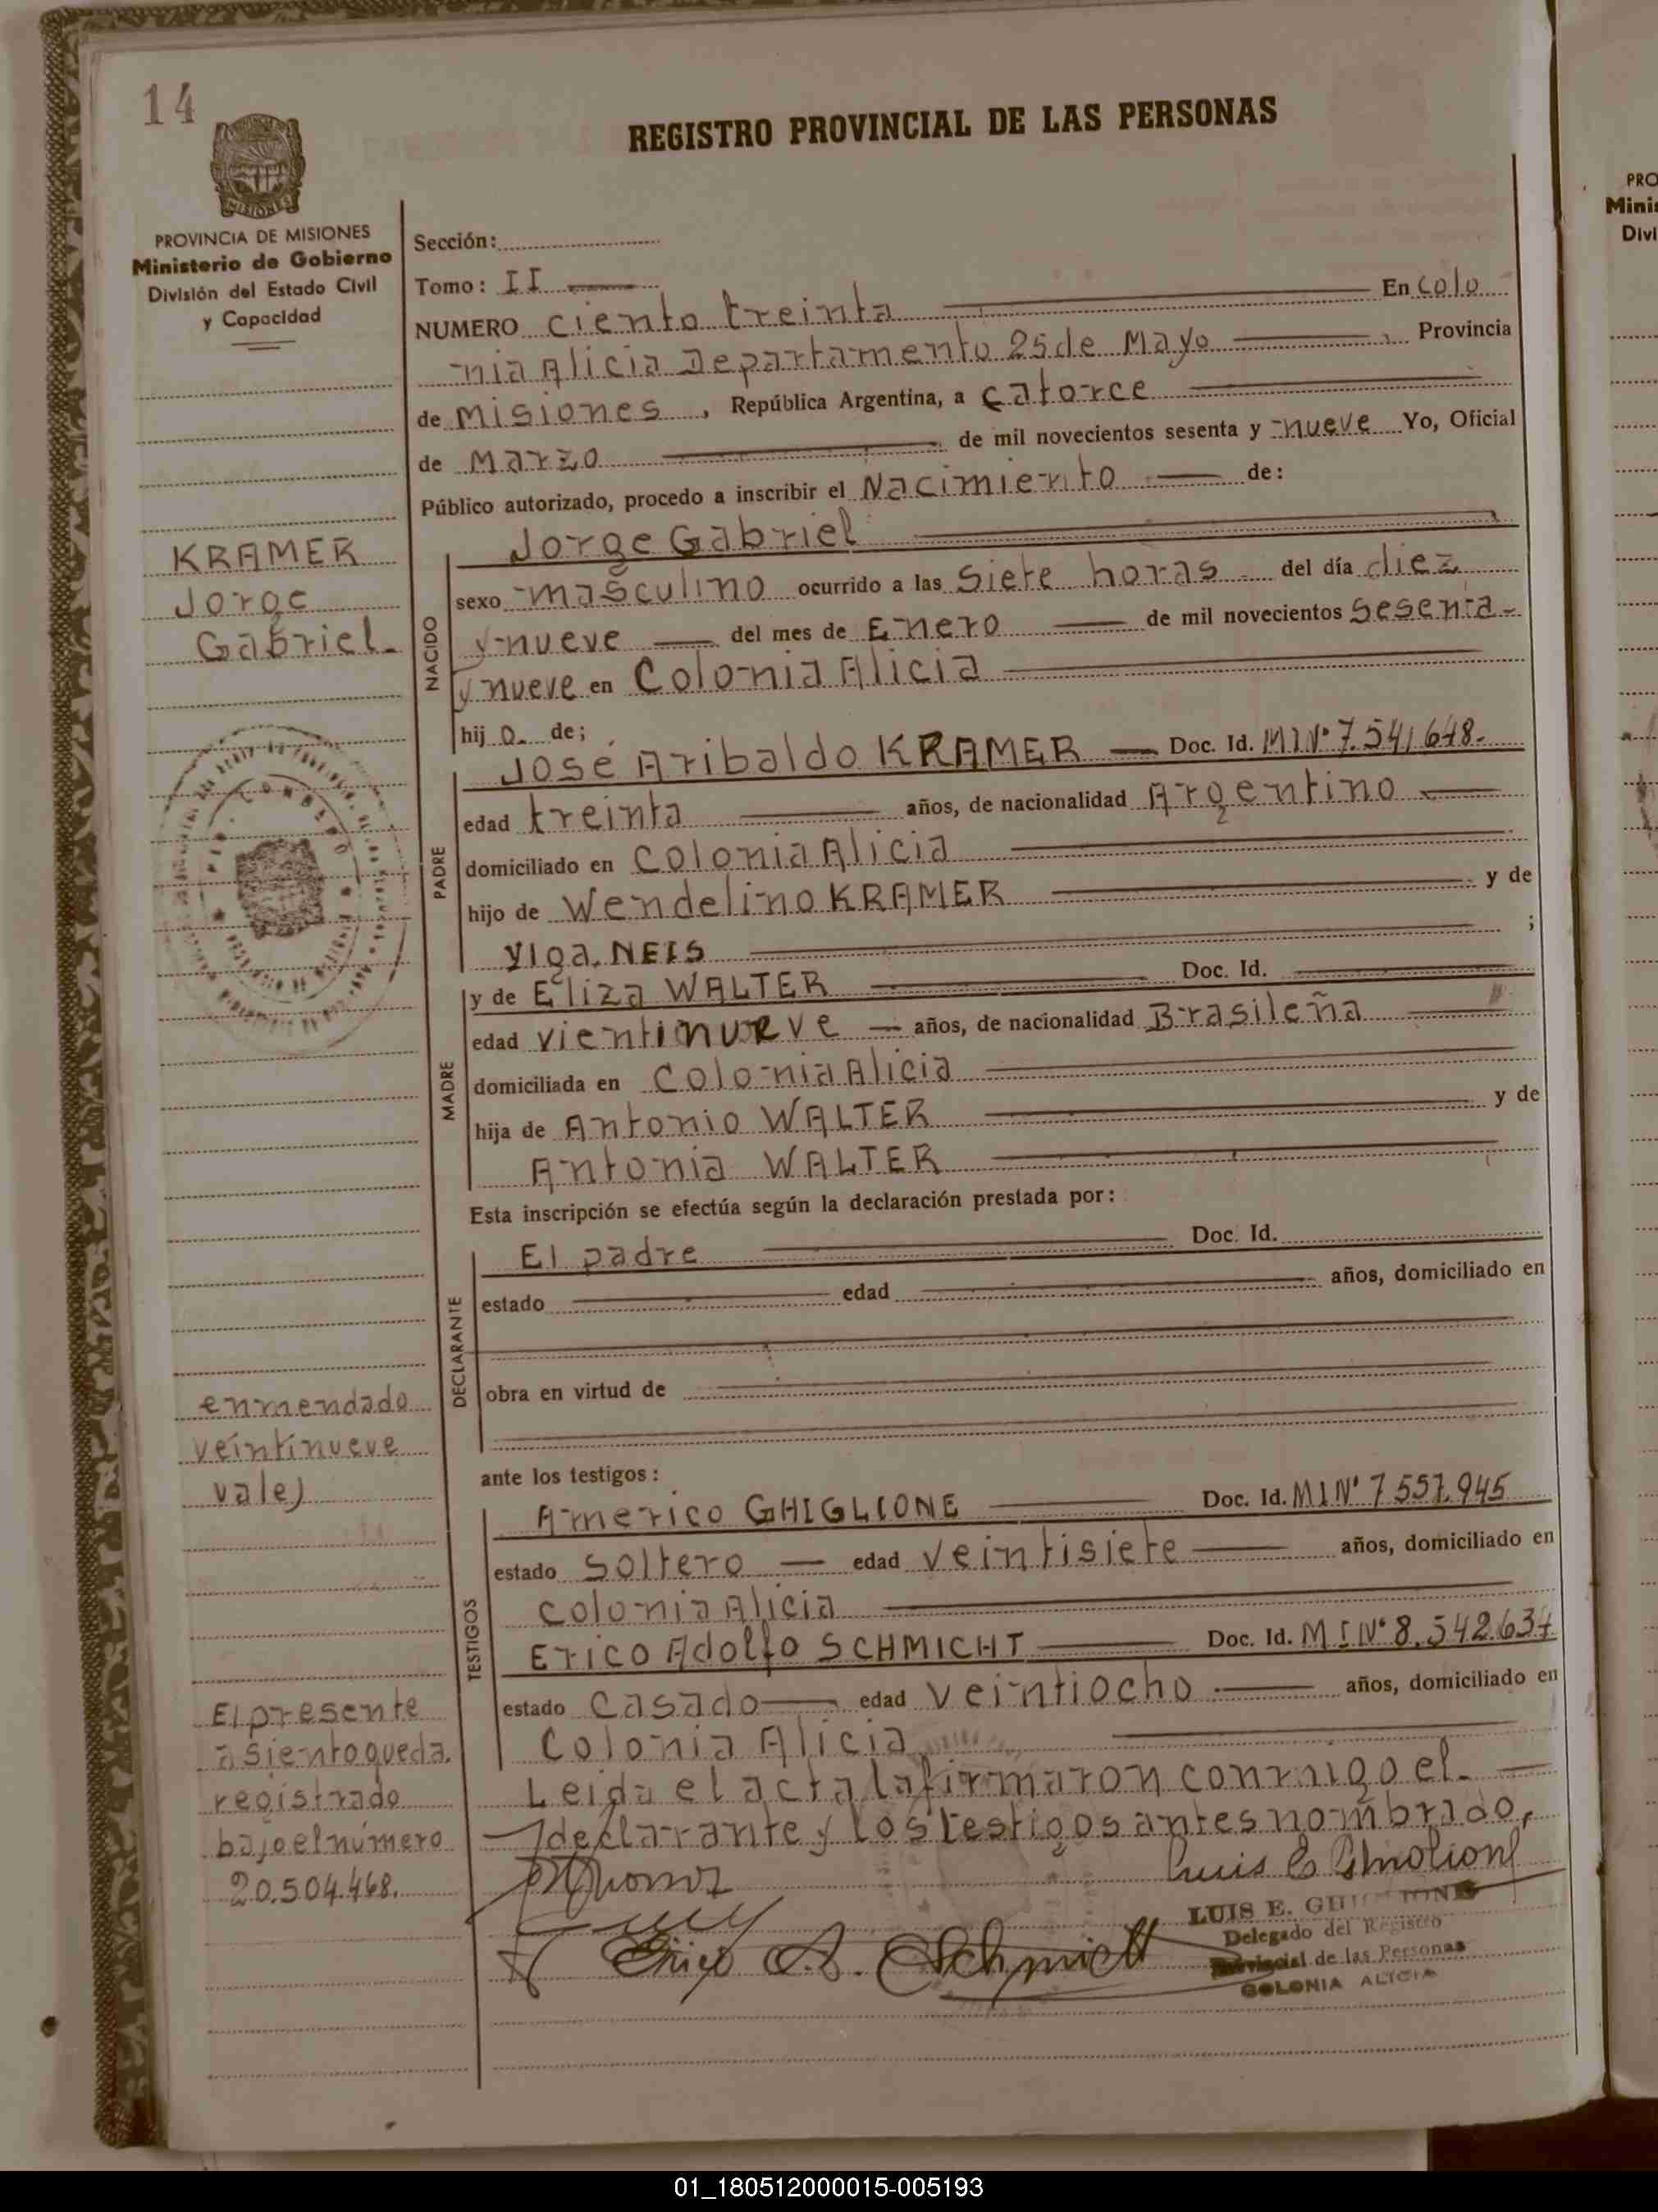 14
REGISTRO PROVINCIAL DE LAS PERSONAS
MISIONES
PROVINCIA DE MISIONES
Ministerio de Gobierno
División del Estado Civil
y Capacidad
Sección:
Tomo: II
NUMERO ciento treinta En Colo
nia Alicia Departamento 25 de Mayo Provincia
de Misiones, República Argentina, a catorce
de Marzo de mil novecientos sesenta y nueve Yo, Oficial
Público autorizado, procedo a inscribir el Nacimiento de:
KRAMER
Jorge
Gabriel.
NACIDO
Jorge Gabriel
sexo masculino ocurrido a las siete horas del día diez
y nueve del mes de Enero de mil novecientos sesenta
y nueve en Colonia Alicia
hijo de;
PADRE
José Aribaldo KRAMER Doc. Id. MIN° 7.541648.
edad treinta años, de nacionalidad Argentino
domiciliado en Colonia Alicia
hijo de Wendelino KRAMER y de
Ylga. NEIS ;
MADRE
y de Eliza WALTER Doc. Id.
edad vientinueve años, de nacionalidad Brasileña
domiciliada en Colonia Alicia
hija de Antonio WALTER y de
Antonia WALTER
Esta inscripción se efectúa según la declaración prestada por:
DECLARANTE
El padre Doc. Id.
estado edad años, domiciliado en
obra en virtud de
enmendado
veintinueve
vale)
ante los testigos:
TESTIGOS
Americo GHIGLIONE Doc. Id. MIN° 7.557.945
estado soltero edad veintisiete años, domiciliado en
Colonia Alicia
Erico Adolfo SCHMICHT Doc. Id. MIN° 8.542.634
estado casado edad veintiocho años, domiciliado en
Colonia Alicia
Leida el acta la firmaron conmigo el
declarante y los testigos antes nombrado,
El presente
asiento queda
registrado
bajo el número
20.504.468.
Luis E
LUIS E.
Delegado del Registro
Provincial de las Personas
COLONIA ALICIA
Erico A. Schmidt
PRO
Minis
Divi
01_180512000015-005193